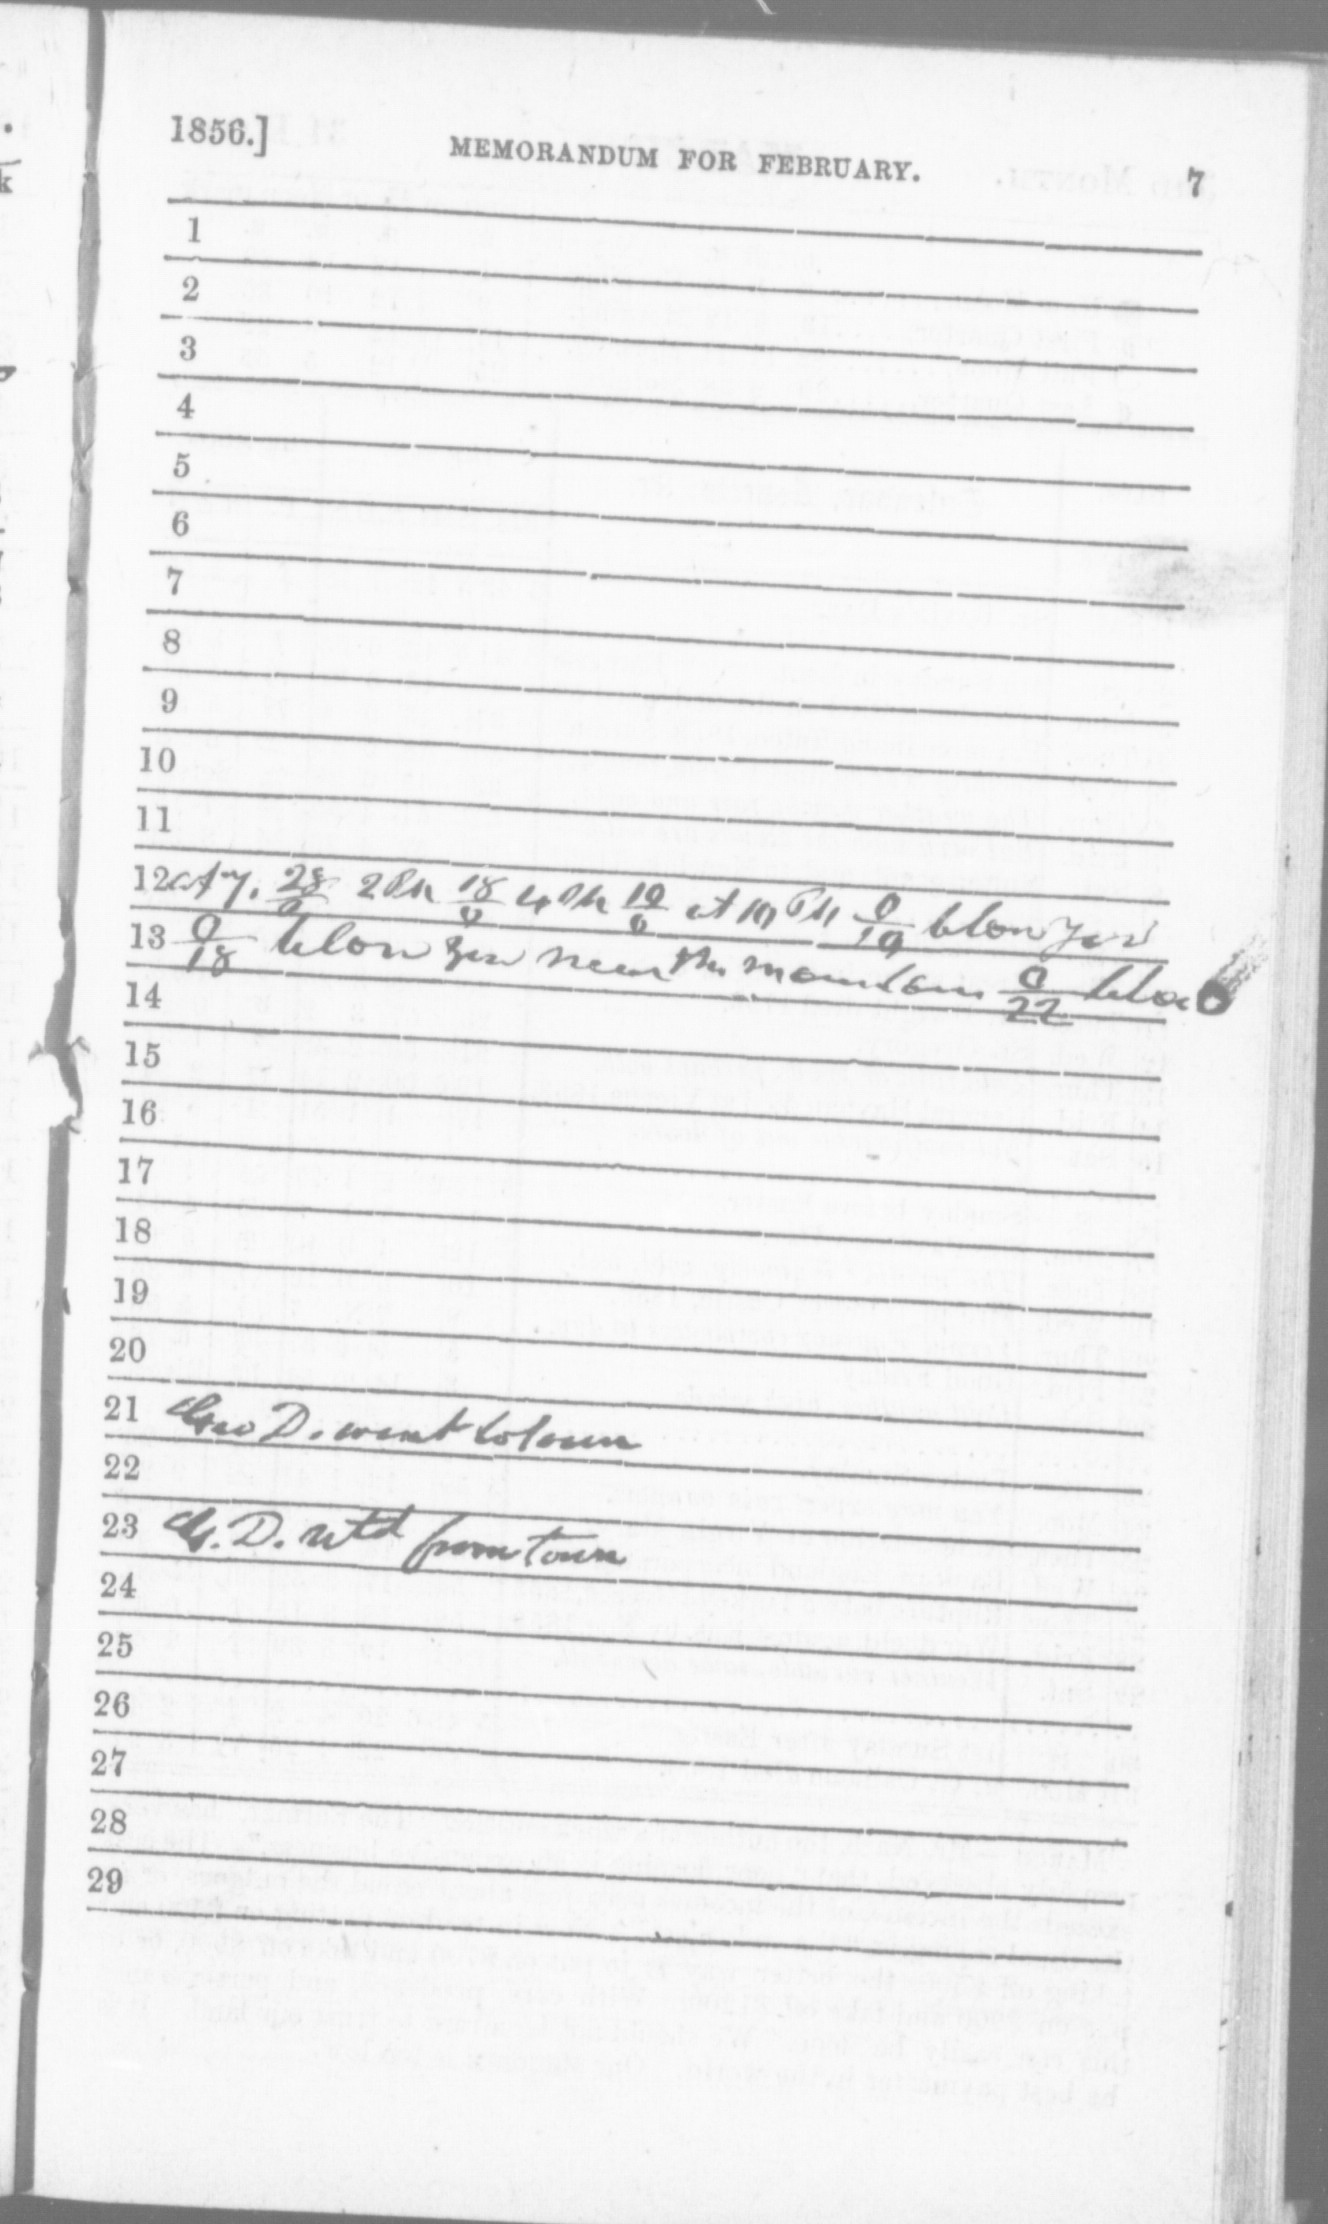 1856.] MEMORANDUM FOR FEBRUARY. 7
1
2
3
4
5
6
7
8
9
10
11
12 at 7. 28/0 2 PM 18/0 4 PM 10/0 at 10 PM 0/10 blow zero
13 0/18 blow zero near the mountain 0/22 blow
14
15
16
17
18
19
20
21 Geo D. went to town
22
23 G. D. retd from town
24
25
26
27
28
29